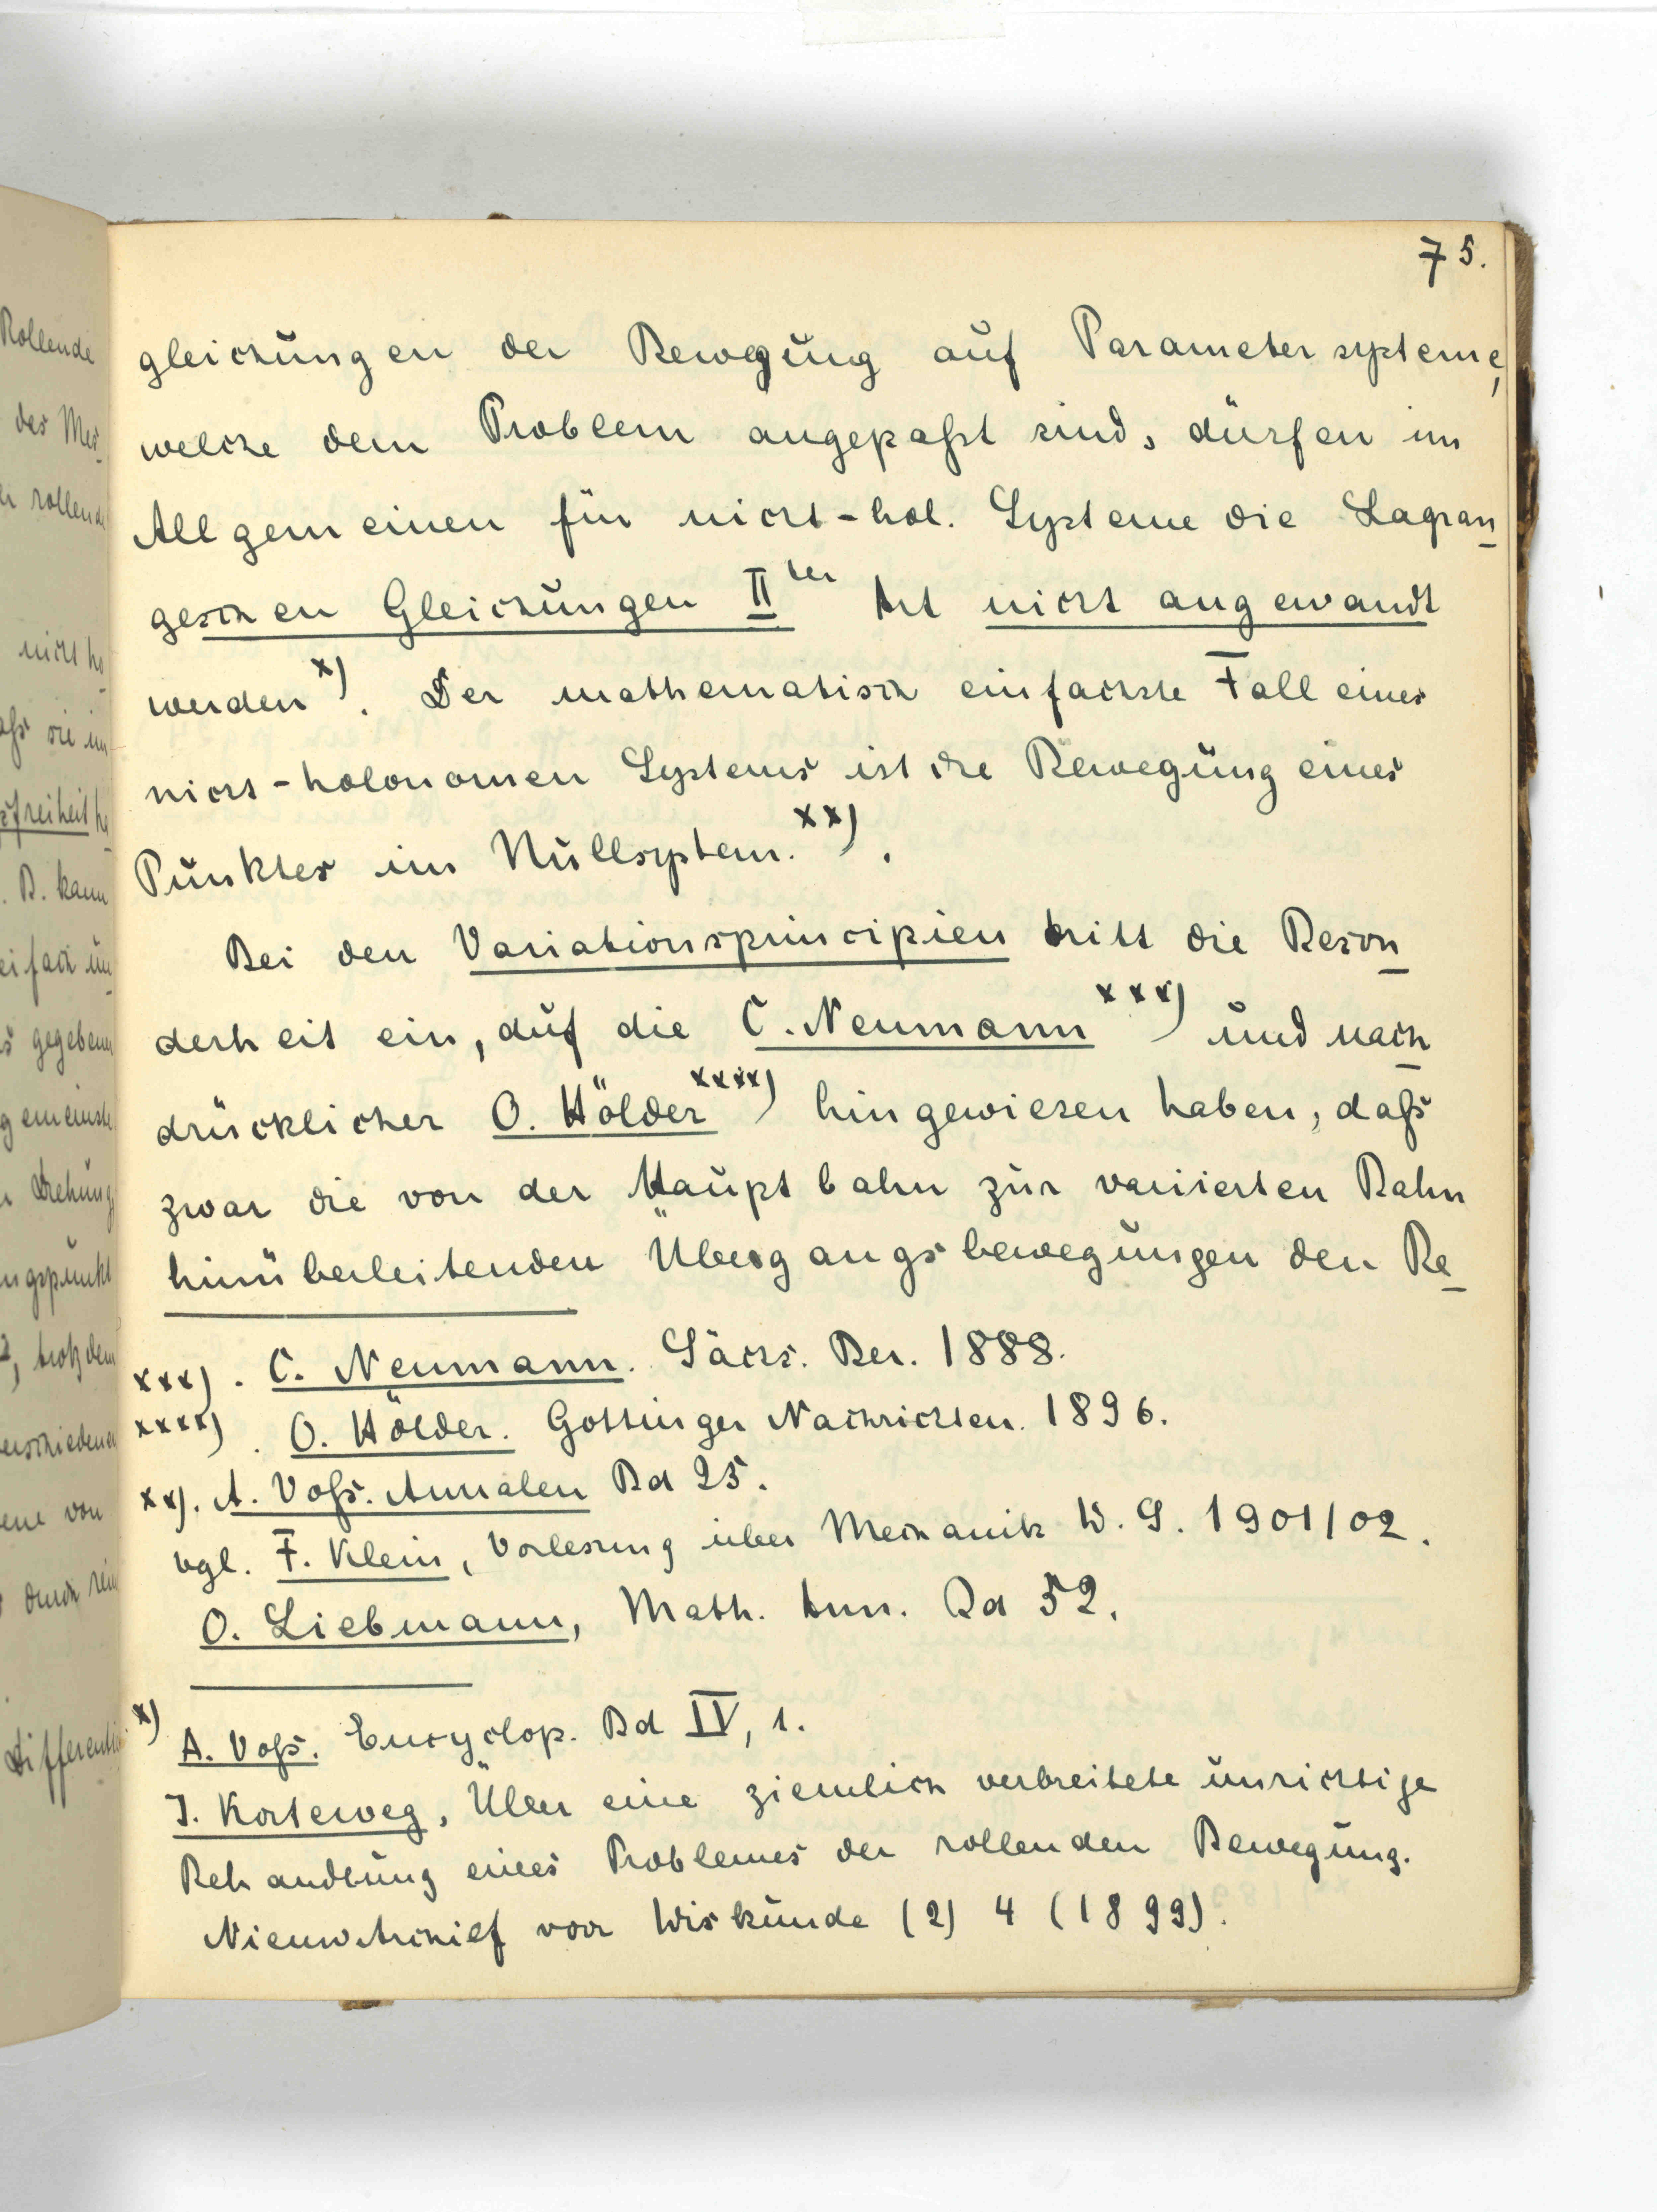 75.
gleichungen der Bewegung auf Parametersysteme,
welche dem Problem angepaßt sind, dürfen im
Allgemeinen für nicht-hol. Systeme die Lagran
geschen Gleichungen II ter Art nicht angewandt
werden x). Der mathematisch einfachste Fall eines
nicht-holonomen Systems ist die Bewegung eines
Punktes im Nullsystem. xx).
Bei den Variationsprincipien tritt die Beson
derheit ein, auf die C. Neumann xxx) und nach
drücklicher O. Hölder xxxx) hingewiesen haben, daß
zwar die von der Hauptbahn zur variierten Bahn
hinüberleitenden Übergangsbewegungen den Be
xxx). C. Neumann. Sächs. Ber. 1888.
xxxx). O. Hölder. Göttinger Nachrichten. 1896.
xx). A. Voß. Annalen Bd 25.
vgl. F. Klein, Vorlesung über Mechanik W. S. 1901/02.
O. Liebmann, Math. Ann. Bd 52.
x) A. Voß. Encyclop. Bd IV, 1.
J. Korteweg, Über eine ziemlich verbreitete unrichtige
Behandlung eines Problemes der rollenden Bewegung.
Nieuw Archief voor Wiskunde (2) 4 (1899).
Rollende
des Mes
rollend
nicht ho
freiheit
B. kann
gegebenen
Drehung
ngspunkt
trotzdem
erschiedene
ene von
durch
Differentia